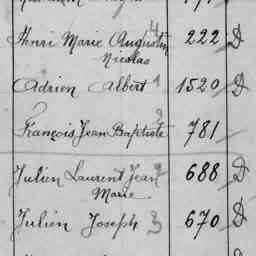 Henri Marie Augustin 4 222 D
Nicolas
Adrien Albert 1 1520 D
2
François Jean Baptiste 781
Julien Laurent Jean 688 D
Marie
Julien Joseph 3 670 D